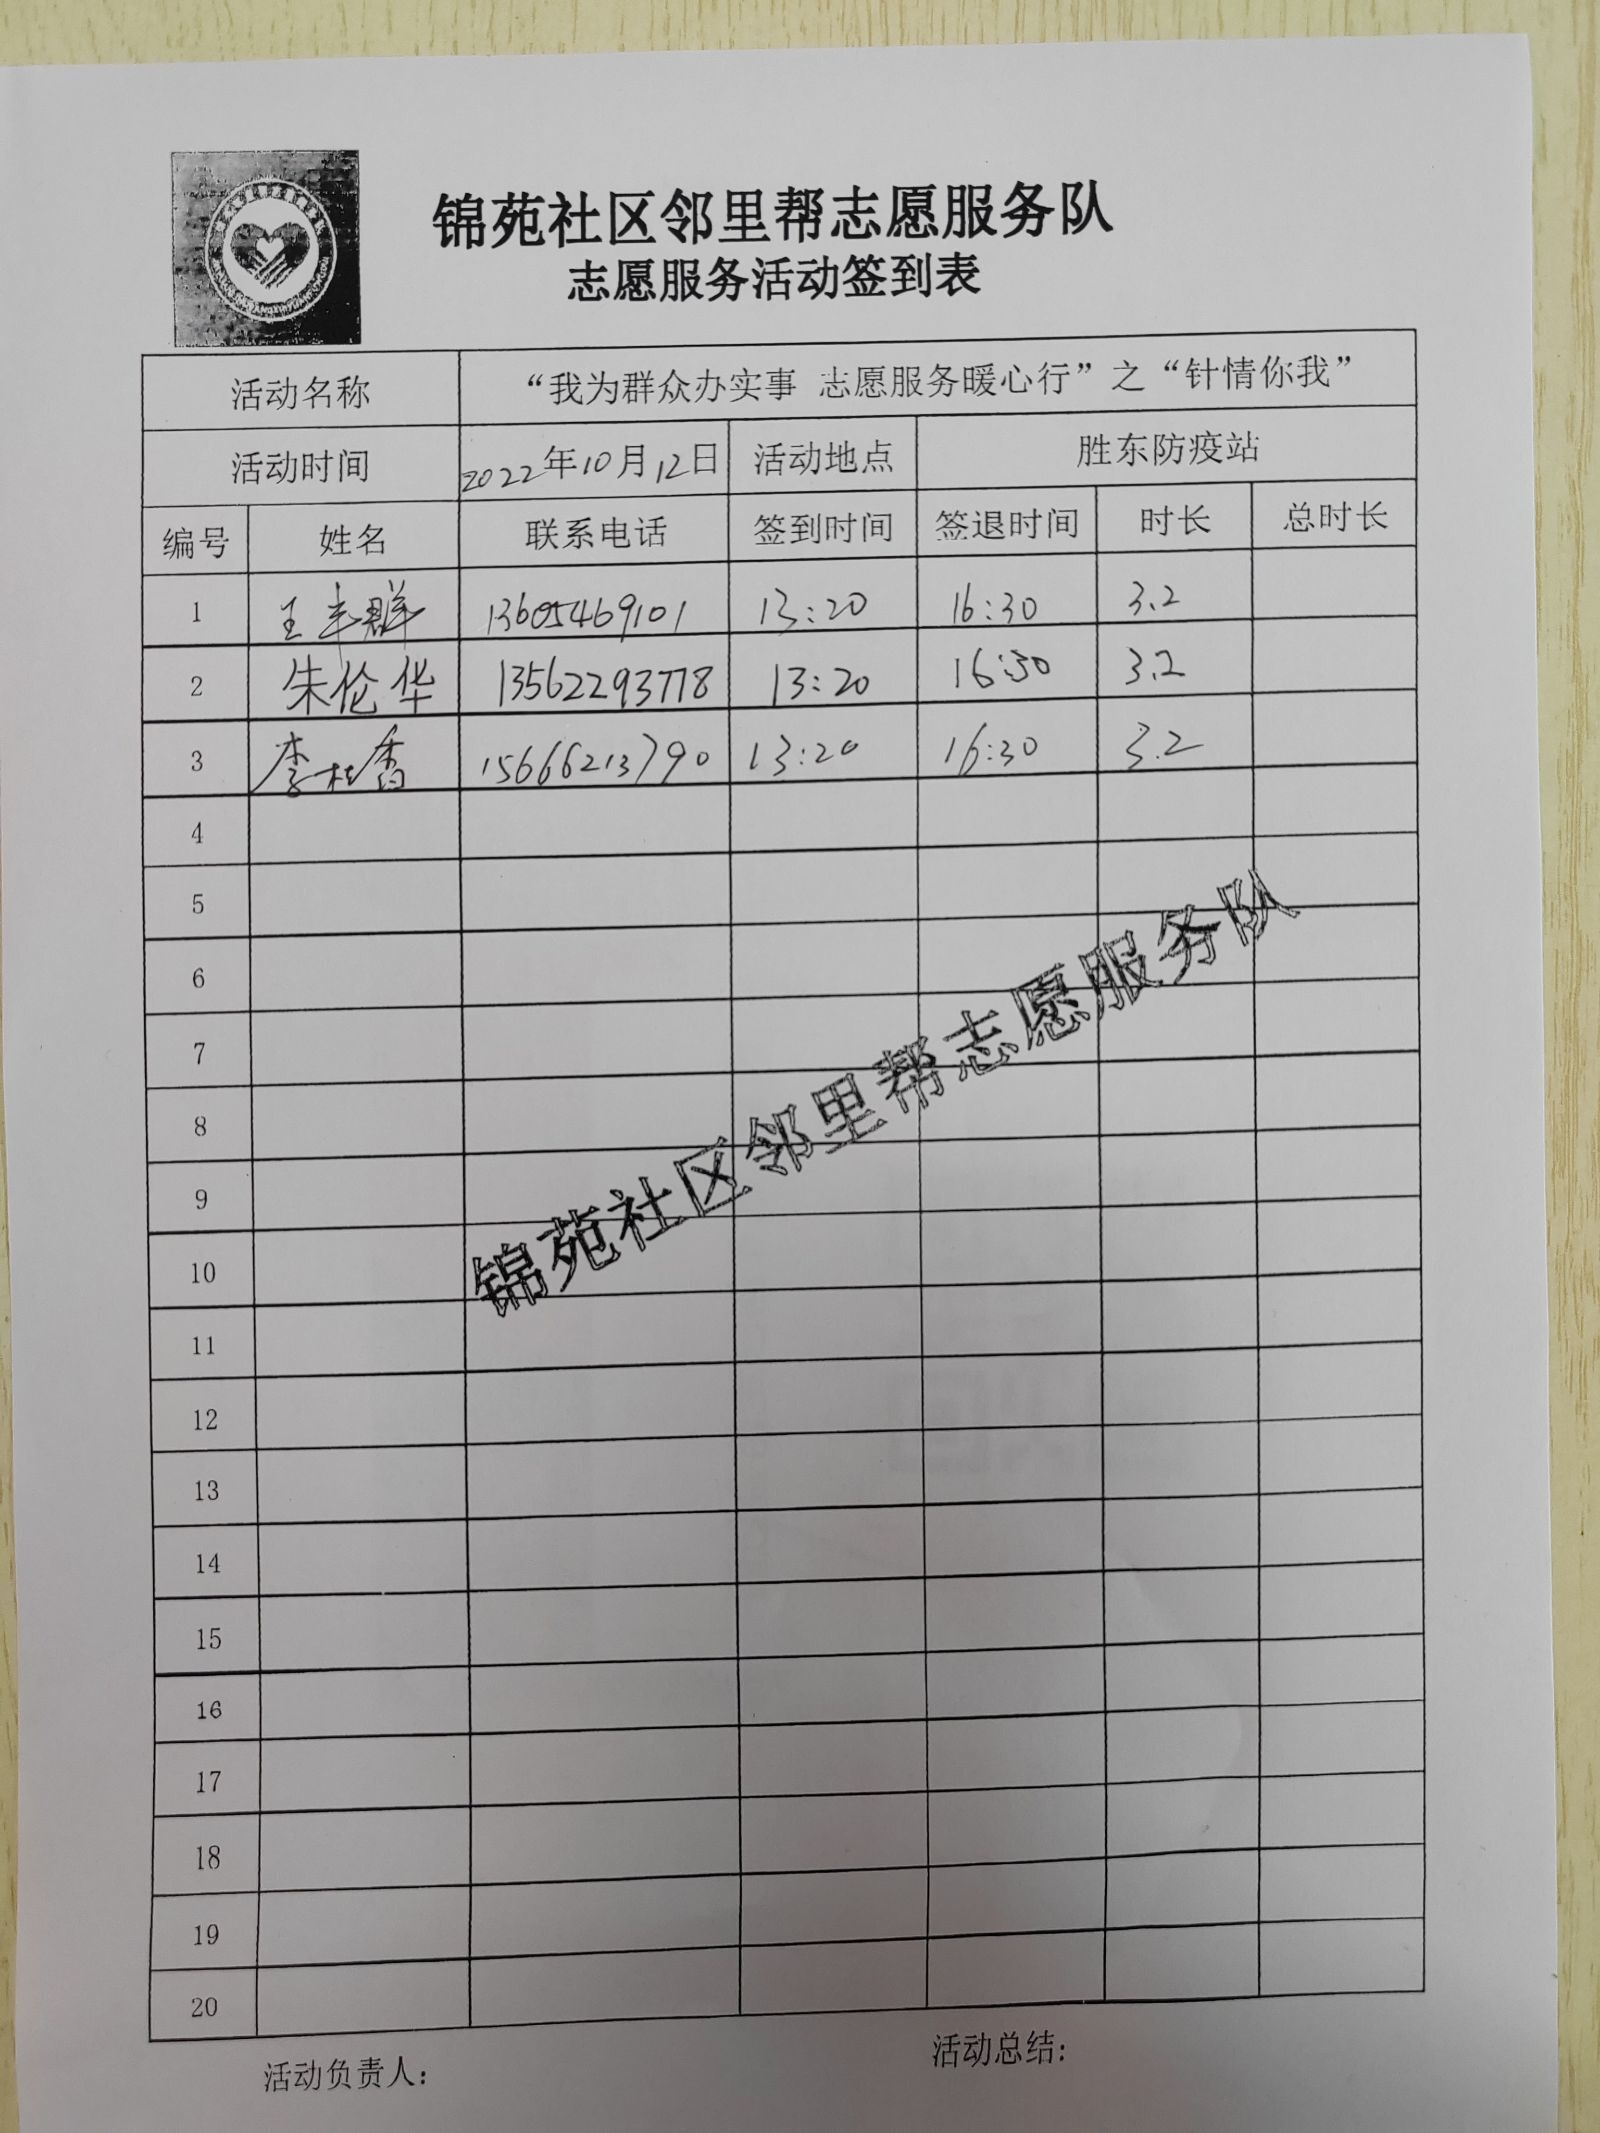 锦苑社区邻里帮志愿服务队
志愿服务活动签到表
活动名称 “我为群众办实事 志愿服务暖心行”之“针情你我”
活动时间 2022年10月12日 活动地点 胜东防疫站
编号 姓名 联系电话 签到时间 签退时间 时长 总时长
1 王丰群 13605469101 13:20 16:30 3.2
2 朱伦华 13562293778 13:20 16:30 3.2
3 李桂香 15666213790 13:20 16:30 3.2
4
5
6
7
8
9
10
11
12
13
14
15
16
17
18
19
20
锦苑社区邻里帮志愿服务队
活动负责人: 活动总结: